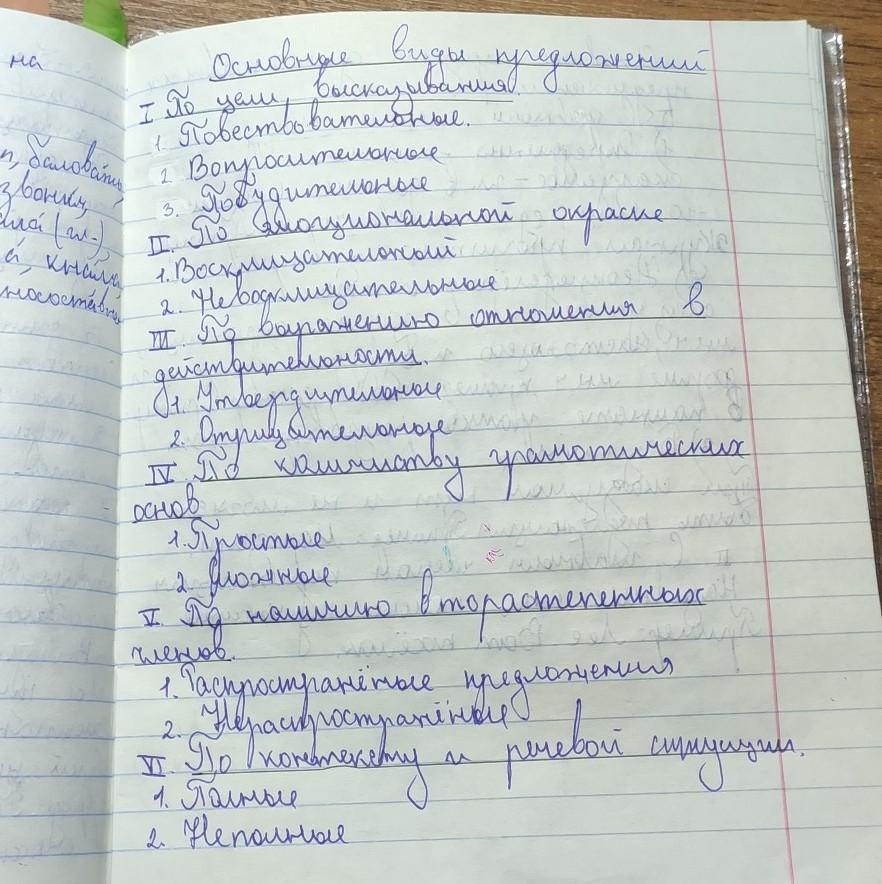 Основные виды предложений
I По цели высказывания.
1. Повествовательные.
2. Вопросительные
3. Побудительные
II. По эмоциональной окраске
1. Восклицательный
2. Невосклицательные
III По выражению отношения в
действительности.
1. Утвердительные
2. Отрицательные
IV По количиству грамотических
основ
1. Простые
2 Сложные
V. По наличию второстепенных
членов.
1. Распространённые предложения
2. Нераспространённые
VI. По контексту и речевой ситуации.
1. Полные
2. Неполные
на
баловать,
звонит,
(гл.)